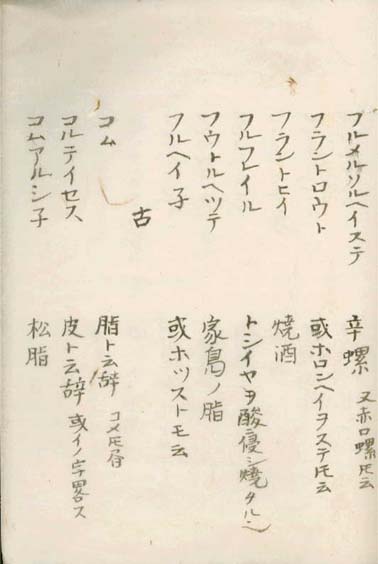 フルメルソルヘイステ 辛螺 又赤ロ螺トモ云
フラントロウト 或ホロンヘイヲステトモ云
フラントヒイ 焼酒
フルフレイル トシイヤヲ酸ニ優シ焼タル
フウトルヘツテ 家鳬ノ脂
フルヘイ子 或ホツストモ云
古
コム 脂ト云辞
コルテイセス 皮ト云辞 或イノ字畧ス
コムアルシ子 松脂